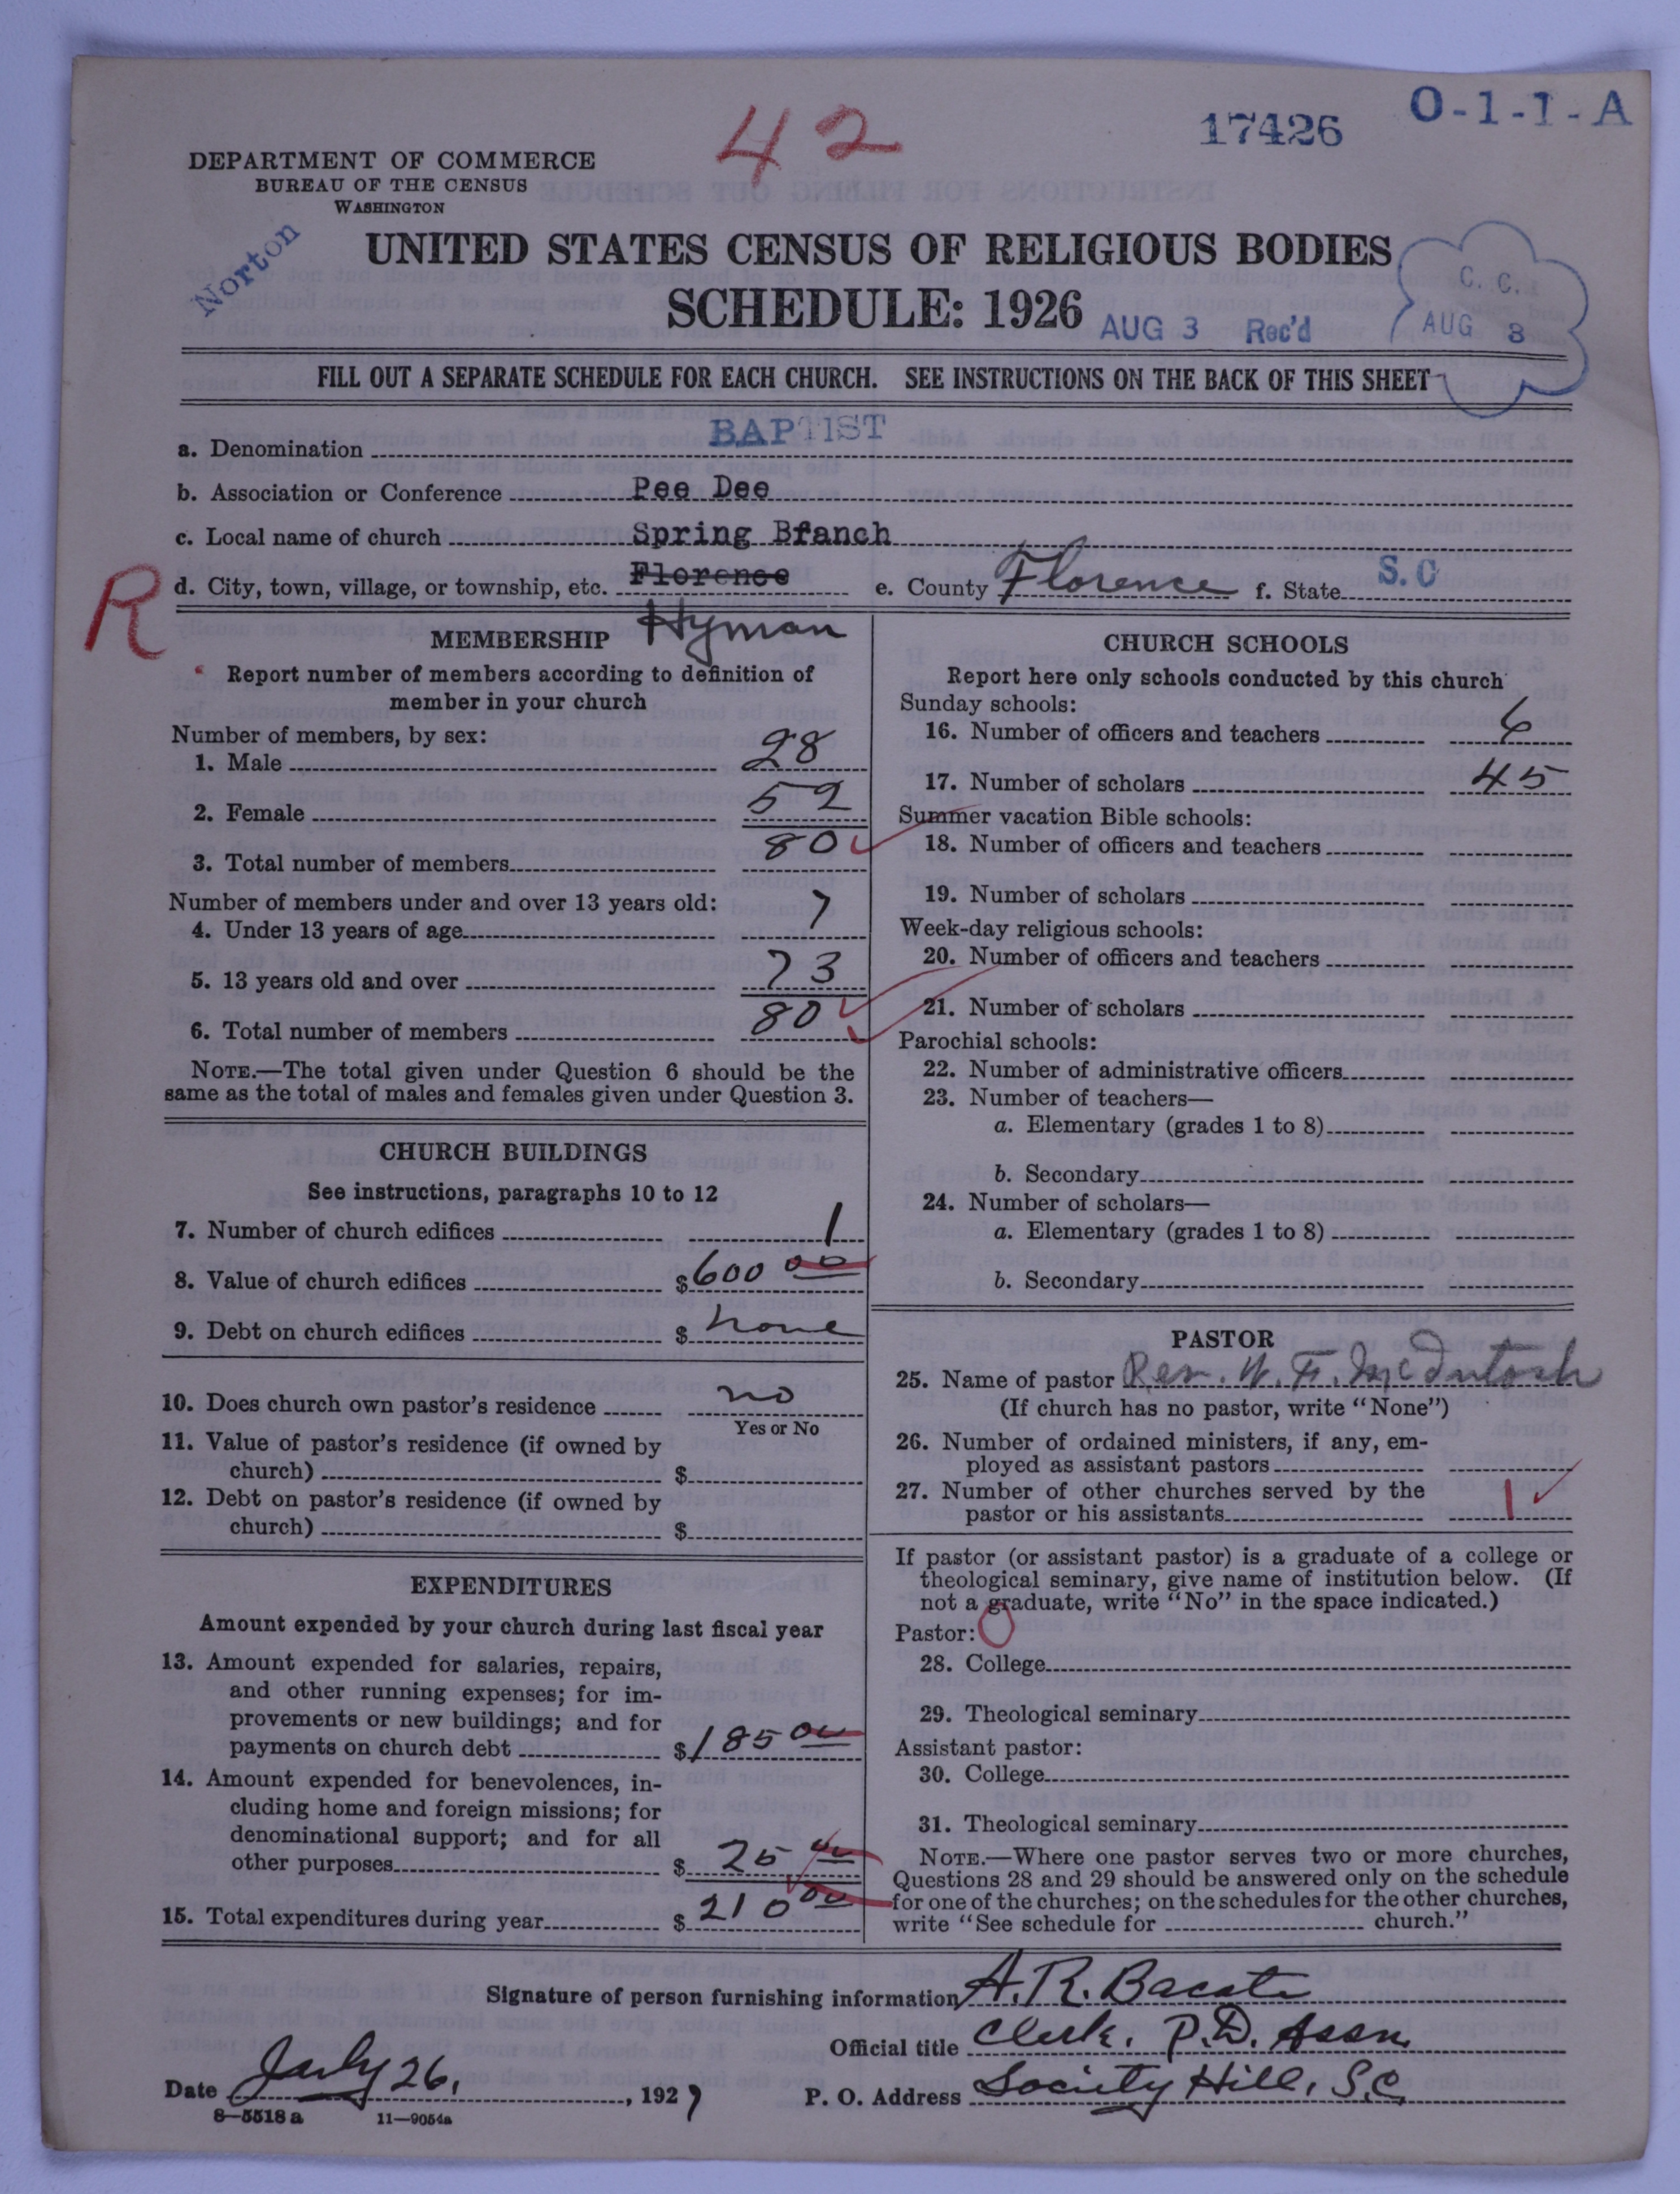 42
17426
O-1-1-A
DEPARTMENT OF COMMERCE
BUREAU OF THE CENSUS
WASHINGTON
Norton
UNITED STATES CENSUS OF RELIGIOUS BODIES
SCHEDULE: 1926
AUG 3 Rec'd
C. C.
AUG 8
FILL OUT A SEPARATE SCHEDULE FOR EACH CHURCH. SEE INSTRUCTIONS ON THE BACK OF THIS SHEET
a. Denomination BAPTIST
b. Association or Conference Pee Dee
c. Local name of church Spring Branch
R
d. City, town, village, or township, etc. Florence e. County Florence f. State S.C
Hyman
MEMBERSHIP
Report number of members according to definition of
member in your church
Number of members, by sex:
1. Male 28
2. Female 52
3. Total number of members 80
Number of members under and over 13 years old:
4. Under 13 years of age 7
5. 13 years old and over 73
6. Total number of members 80
NOTE.—The total given under Question 6 should be the
same as the total of males and females given under Question 3.
CHURCH BUILDINGS
See instructions, paragraphs 10 to 12
7. Number of church edifices 1
8. Value of church edifices $600 00
9. Debt on church edifices $ none
10. Does church own pastor's residence no
Yes or No
11. Value of pastor's residence (if owned by
church) $
12. Debt on pastor's residence (if owned by
church) $
EXPENDITURES
Amount expended by your church during last fiscal year
13. Amount expended for salaries, repairs,
and other running expenses; for im-
provements or new buildings; and for
payments on church debt $185 00
14. Amount expended for benevolences, in-
cluding home and foreign missions; for
denominational support; and for all
other purposes $ 25 00
15. Total expenditures during year $ 210 00
CHURCH SCHOOLS
Report here only schools conducted by this church
Sunday schools:
16. Number of officers and teachers 6
17. Number of scholars 45
Summer vacation Bible schools:
18. Number of officers and teachers
19. Number of scholars
Week-day religious schools:
20. Number of officers and teachers
21. Number of scholars
Parochial schools:
22. Number of administrative officers
23. Number of teachers—
a. Elementary (grades 1 to 8)
b. Secondary
24. Number of scholars—
a. Elementary (grades 1 to 8)
b. Secondary
PASTOR
25. Name of pastor Rev. W. F. McIntosh
(If church has no pastor, write "None")
26. Number of ordained ministers, if any, em-
ployed as assistant pastors
27. Number of other churches served by the
pastor or his assistants 1
If pastor (or assistant pastor) is a graduate of a college or
theological seminary, give name of institution below. (If
not a graduate, write "No" in the space indicated.)
Pastor: O
28. College
29. Theological seminary
Assistant pastor:
30. College
31. Theological seminary
NOTE.—Where one pastor serves two or more churches,
Questions 28 and 29 should be answered only on the schedule
for one of the churches; on the schedules for the other churches,
write "See schedule for church."
Signature of person furnishing information A. R. Bacote
Official title Clerk. P.D. Assn.
Date July 26, , 1927 P. O. Address Society Hill, S.C.
8—5518 a 11—9054a